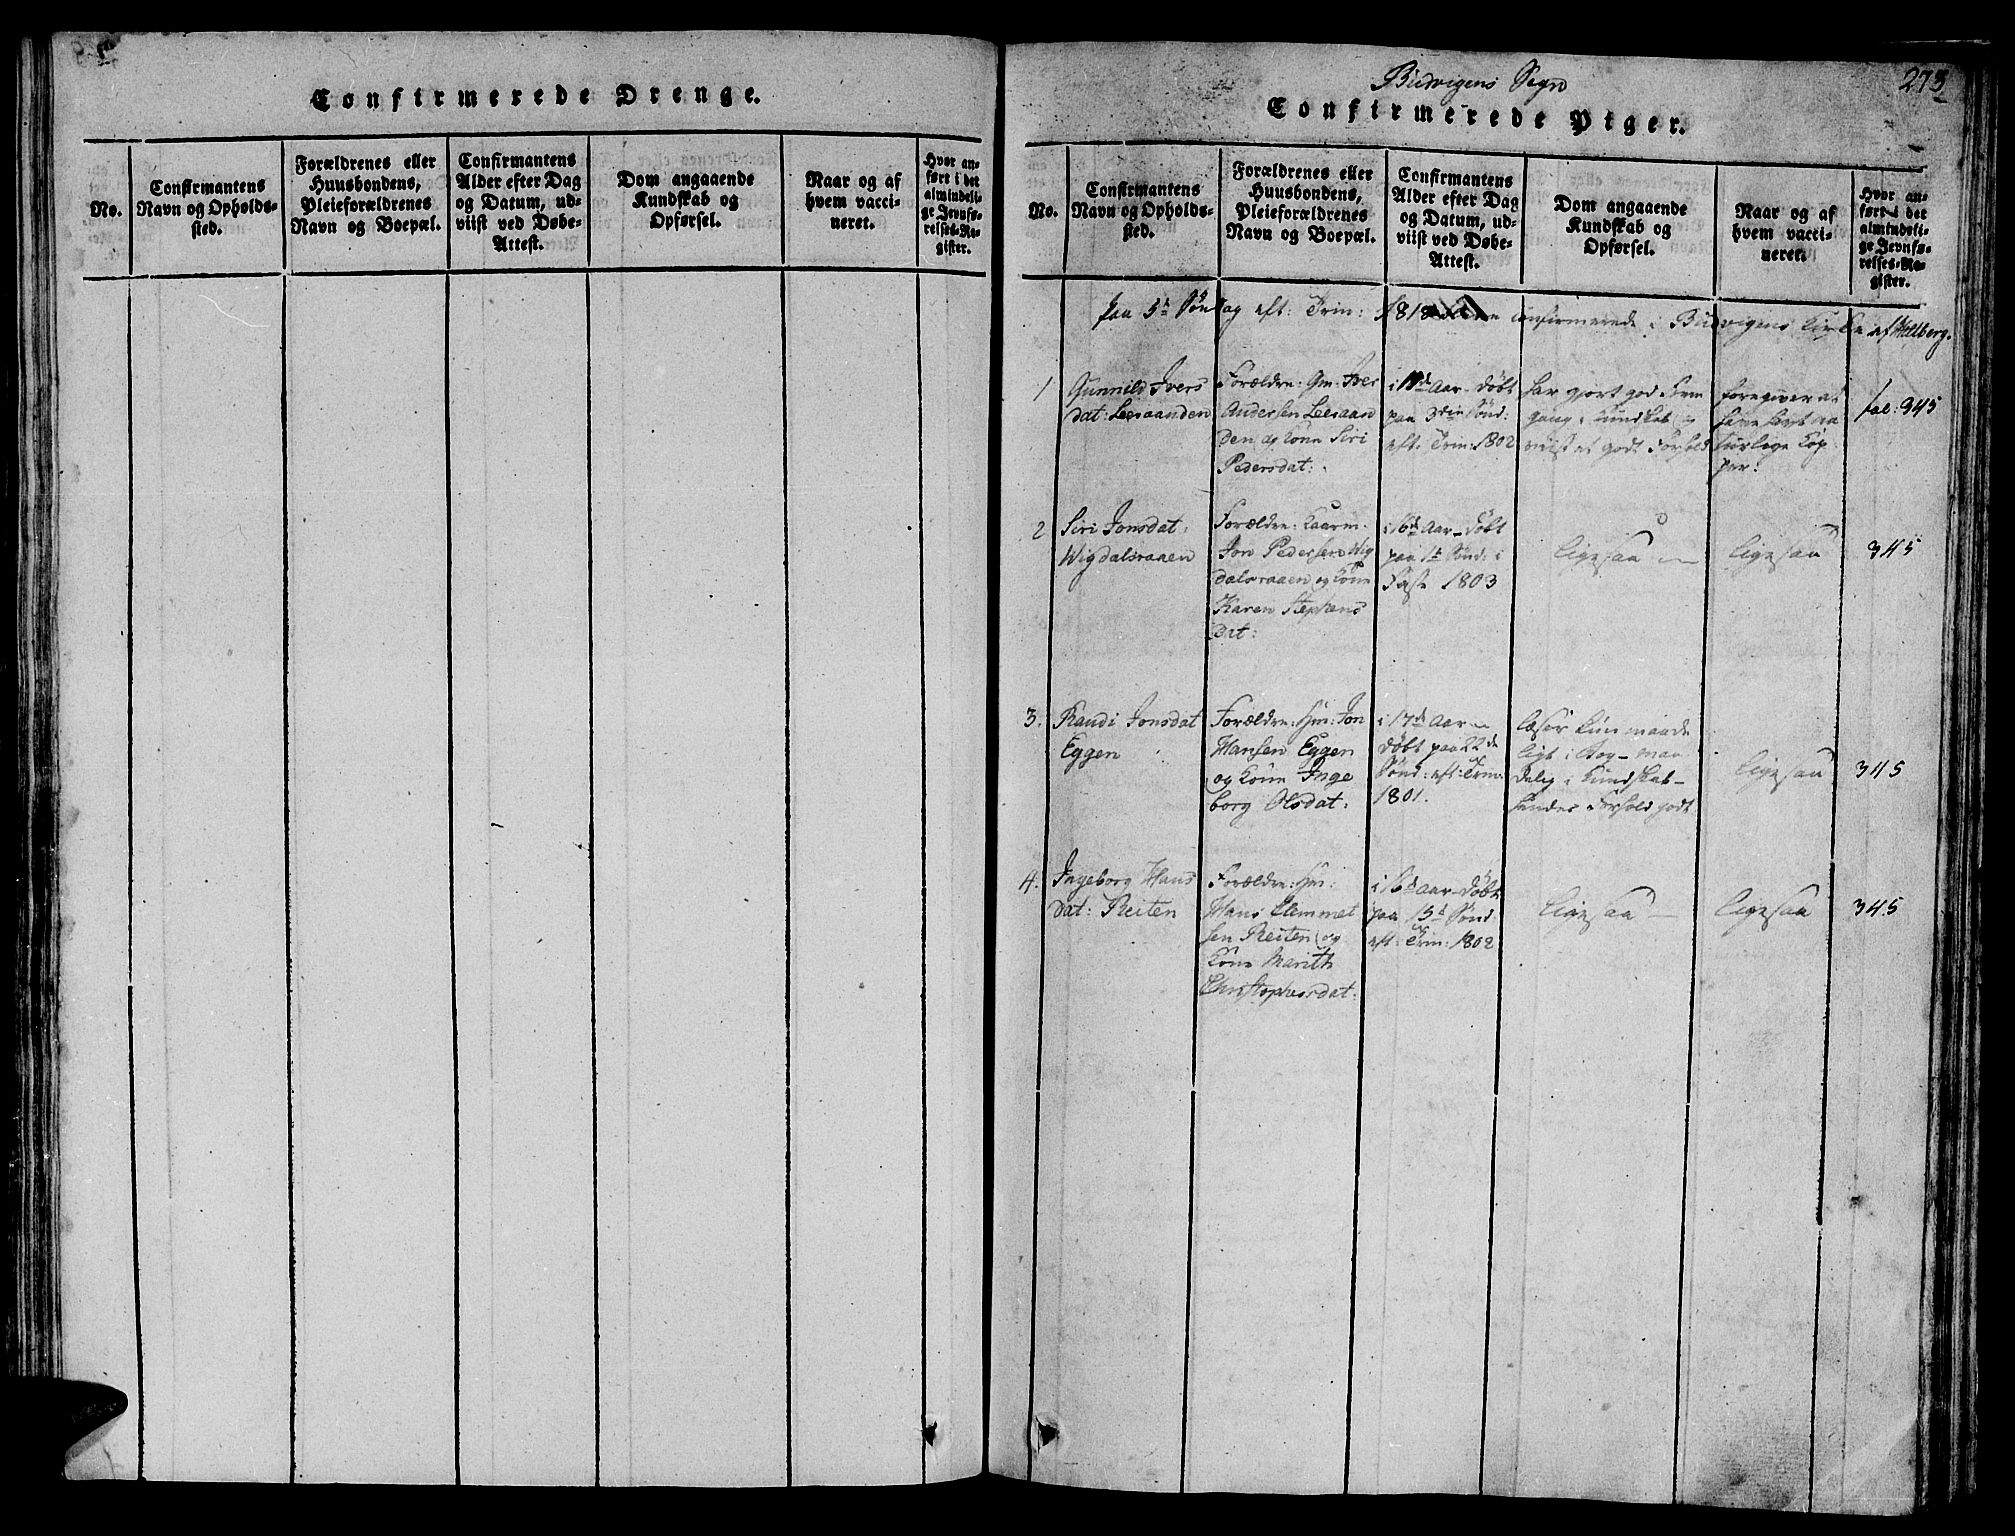 Confirmerede Drenge.
No.
Confirmantens
Navn og Opholds-
sted.
Forældrenes eller
Huusbondens,
Pleieforældrenes
Navn og Boepæl.
Confirmantens
Alder efter Dag
og Datum, ud-
viist ved Døbe-
Attest.
Dom angaaende
Kundskab og
Opførsel.
Naar og af
hvem vacci-
neret.
Hvor an-
ført i det
almindeli-
ge Jevnfø-
relses-Re-
gister.
Budvigens Sogn
273
Confirmerede Piger.
No.
Confirmantens
Navn og Opholds-
sted.
Forældrenes eller
Huusbondens,
Pleieforældrenes
Navn og Boepæl.
Confirmantens
Alder efter Dag
og Datum, ud-
viist ved Døbe-
Attest.
Dom angaaende
Kundskab og
Opførsel.
Naar og af
hvem vacci-
neret.
Hvor an-
ført i det
almindeli-
ge Jevnfø-
relses-Re-
gister.
paa 5te Søndag eft: Trin: 1818 confirmerede i Budvigens Kirke af Wullberg.
1
Gunnild Ivers
dat: Leeraanden
Forældre: Gm: Iver
Andersen Leeraan
den og Kone Siri
Pedersdat:
Aar døbt
paa 3die Sønd:
eft: Trin: 1802
har gjort god Frem
gang i Kundskab og
viist et godt Forhold
foregiver at
have havt na
turlige Kop
per.
fol: 345
2
Siri Jonsdat
Wigdalsraaen
Forældre: Huusm.
Jon Pedersen Wig
dalsraaen og Kone
Karen Stephens
dat:
i 16de Aar døbt
paa 1te Sønd: i
Faste 1803
ligesaa
ligesaa
345
3.
Randi Jonsdat
Eggen
Forældre: Gm: Jon
Hansen Eggen
og Kone Inge
borg Olsdat:
i 17de Aar
døbt paa 22de
Sønd: eft: Trin:
1801.
læser kun maade
ligt i Bog - maa
delig i Kundskab -
hendes Forhold godt
ligesaa
345
4.
Ingeborg Hans
dat: Reiten
Forældre: Gm:
Hans Clemmet
sen Reiten og
Kone Marith
Christophersdat:
i 16de Aar døbt
paa 15de Sønd
eft: Trin: 1802
ligesaa
ligesaa
345